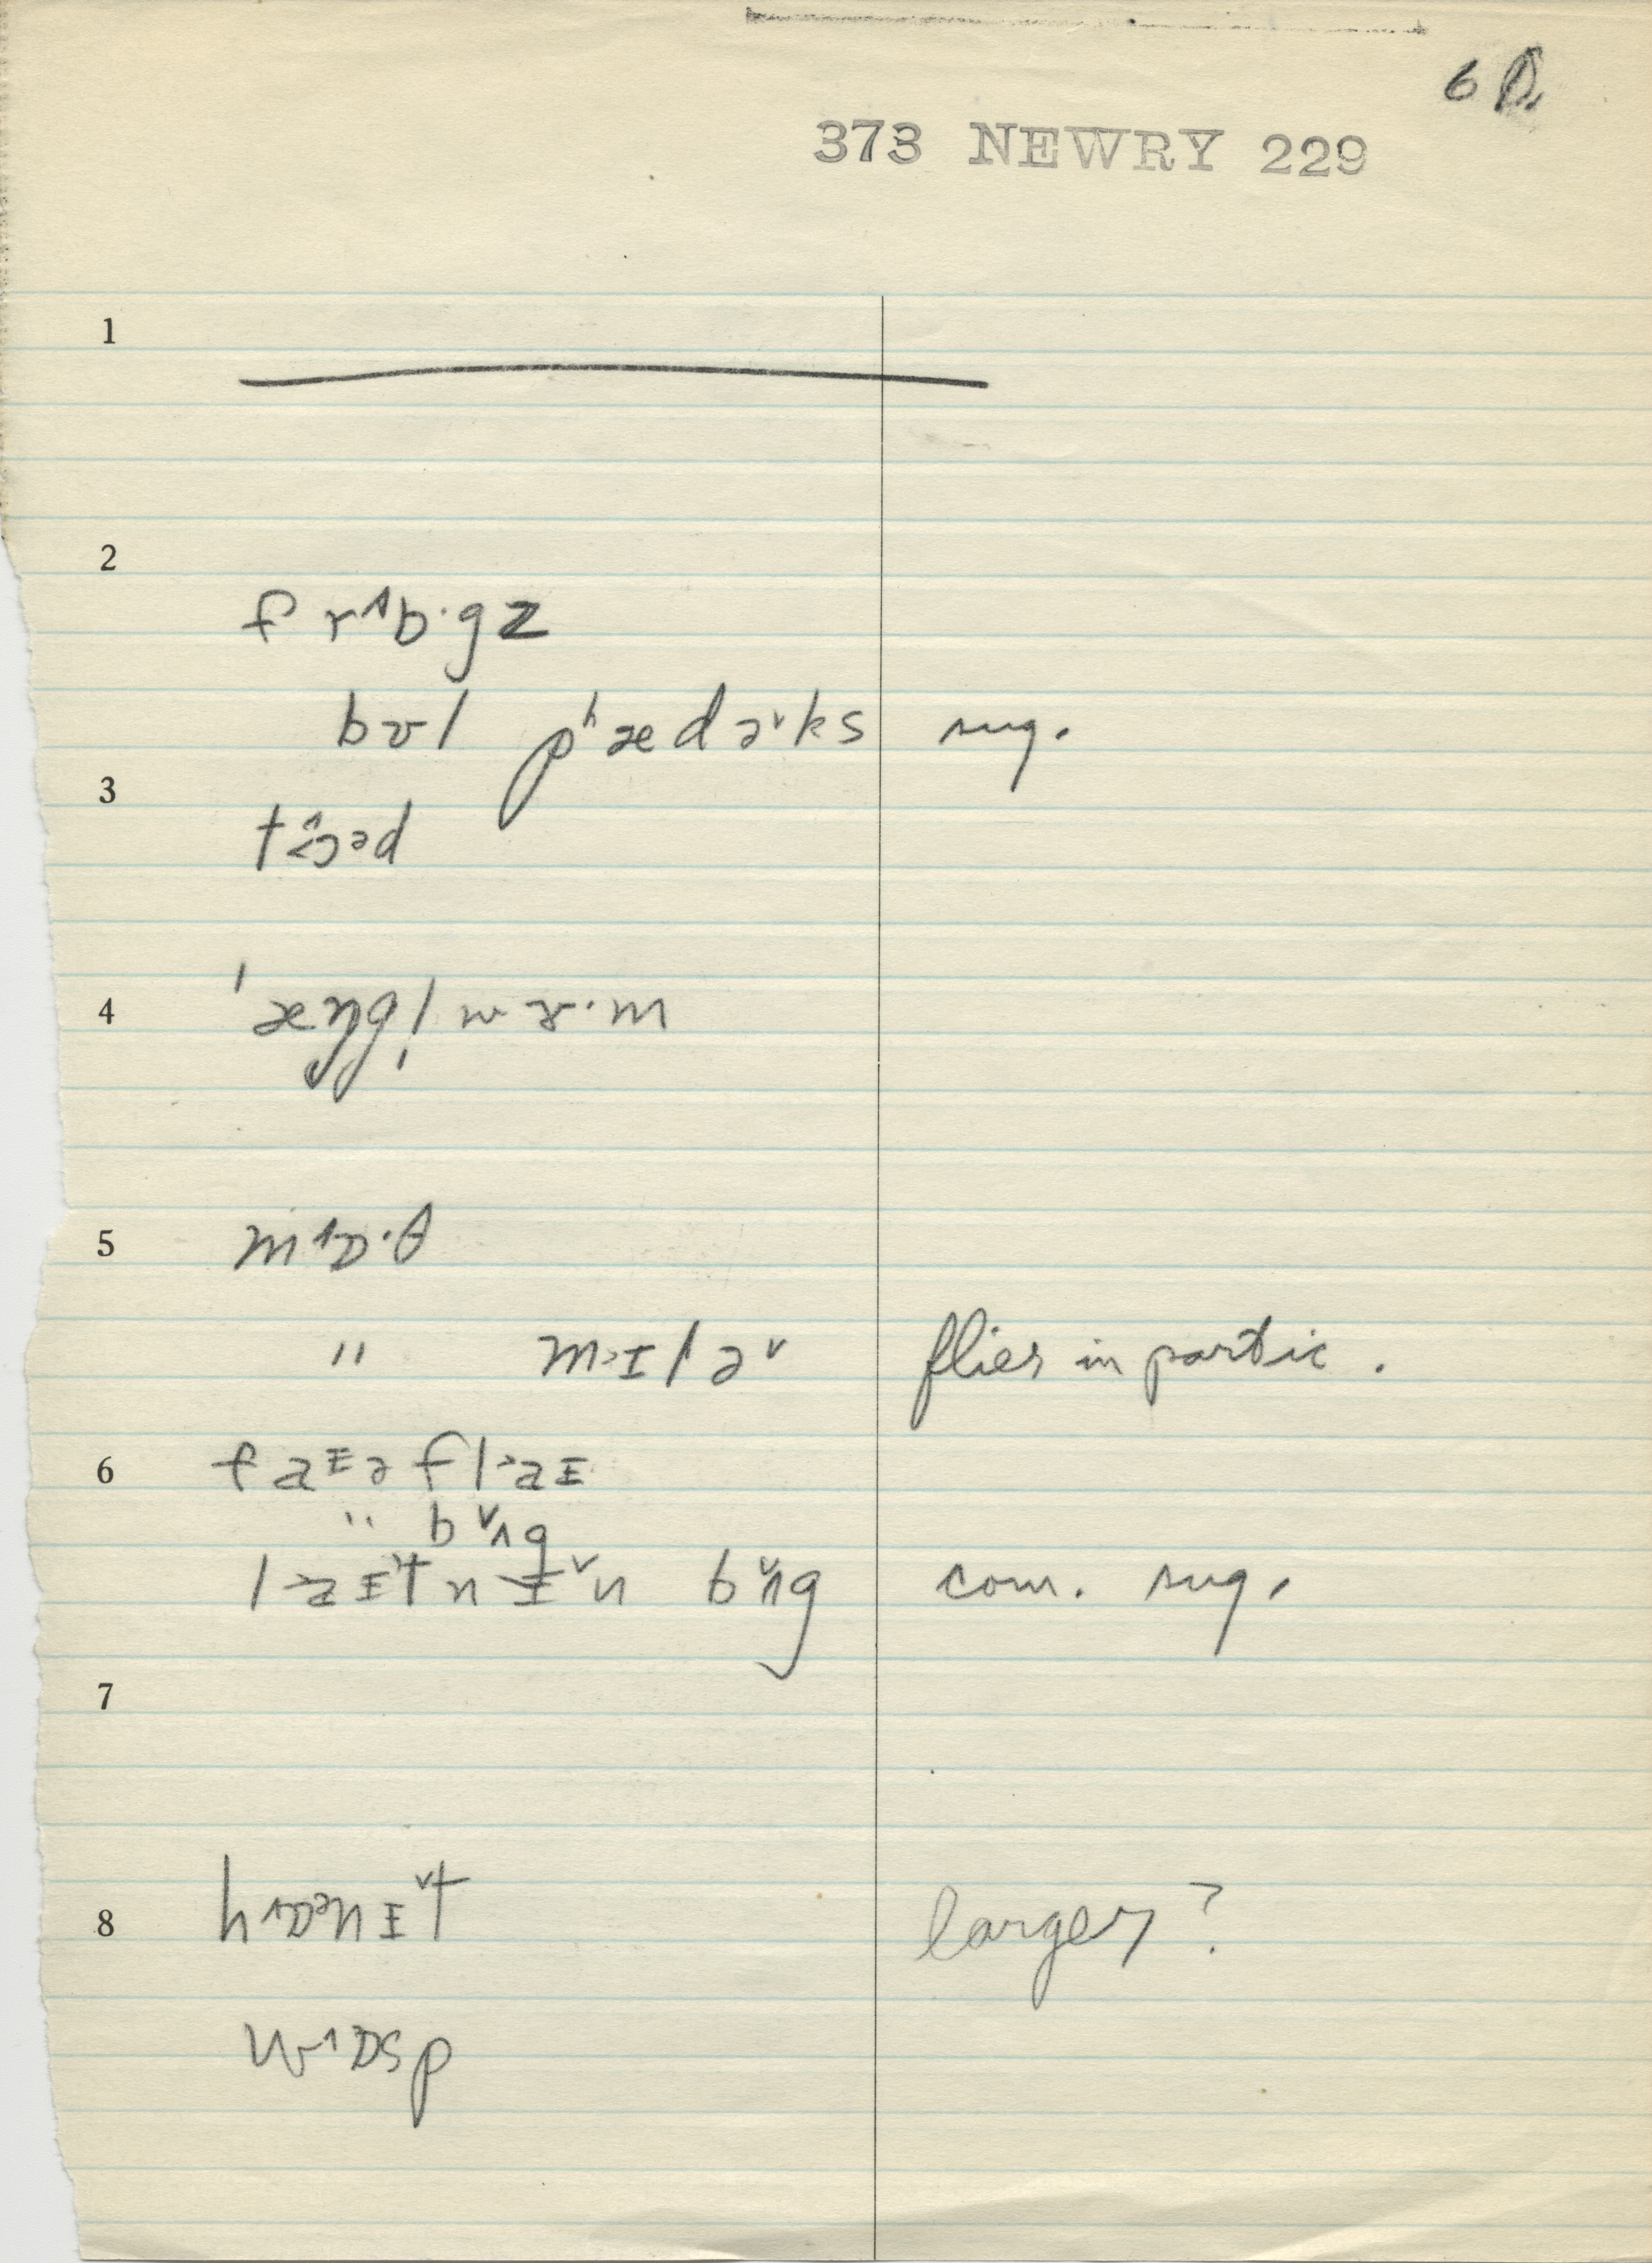 6
373 NEWRY 229
1
2
frɒ·gz
bʊl pʰædɚks sug.
3
4
ˈæŋgl̩wɝ·m
5
mɒ·θ
" mɪlɚ flies in partic.
6
faɪə flaɪ
" bʌg
laɪtnɪn bʌg com. sug.
7
8
hɒənɪt larger?
wɒsp